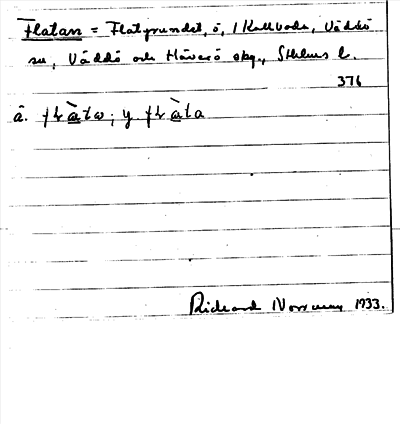 Flatan = Flatgrundet, ö, i Kallboda, Väddö
sn, Väddö och Häverö skg., Sthlms l.
376
ä. flàta; y. flàta
Rickard Norrman 1933.